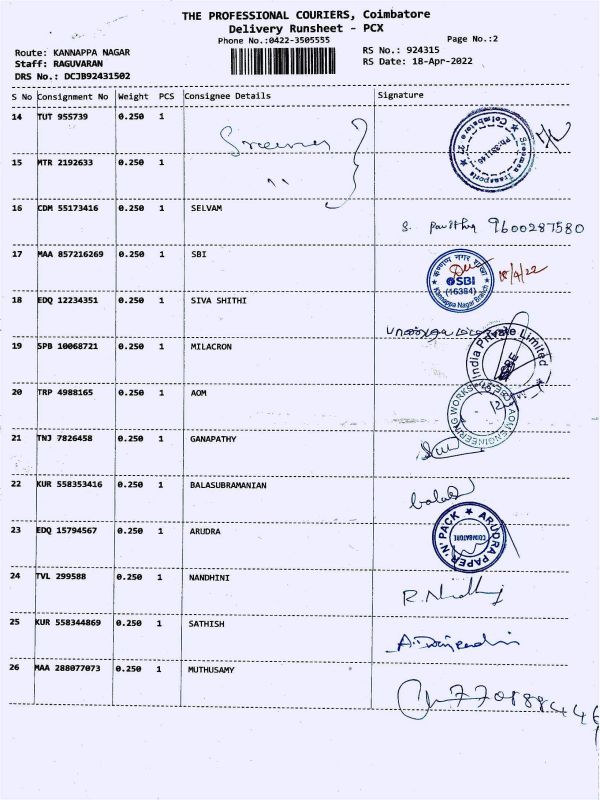 THE PROFESSIONAL COURIERS, Coimbatore
Delivery Runsheet - PCX
Phone No.:0422-3505555
Page No.:2
Route: KANNAPPA NAGAR
RS No.: 924315
Staff: RAGUVARAN
RS Date: 18-Apr-2022
DRS No.: DCJB92431502
S No Consignment No Weight PCS Consignee Details Signature
14 TUT 955739 0.250 1
15 MTR 2192633 0.250 1
Sreeman Transports
Coimbatore
16 CDM 55173416 0.250 1 SELVAM S. Pavithra 9600287580
17 MAA 857216269 0.250 1 SBI
SBI
(16384)
Kannappa Nagar Branch
18/4/22
18 EDQ 12234351 0.250 1 SIVA SHITHI
19 SPB 10068721 0.250 1 MILACRON
India Private Limited
20 TRP 4988165 0.250 1 AOM
AOM ENGINEERING WORKS
21 TNJ 7826458 0.250 1 GANAPATHY
22 KUR 558353416 0.250 1 BALASUBRAMANIAN
23 EDQ 15794567 0.250 1 ARUDRA
ARUDRA PAPER 'N' PACK
COIMBATORE
24 TVL 299588 0.250 1 NANDHINI
25 KUR 558344869 0.250 1 SATHISH
26 MAA 288077073 0.250 1 MUTHUSAMY